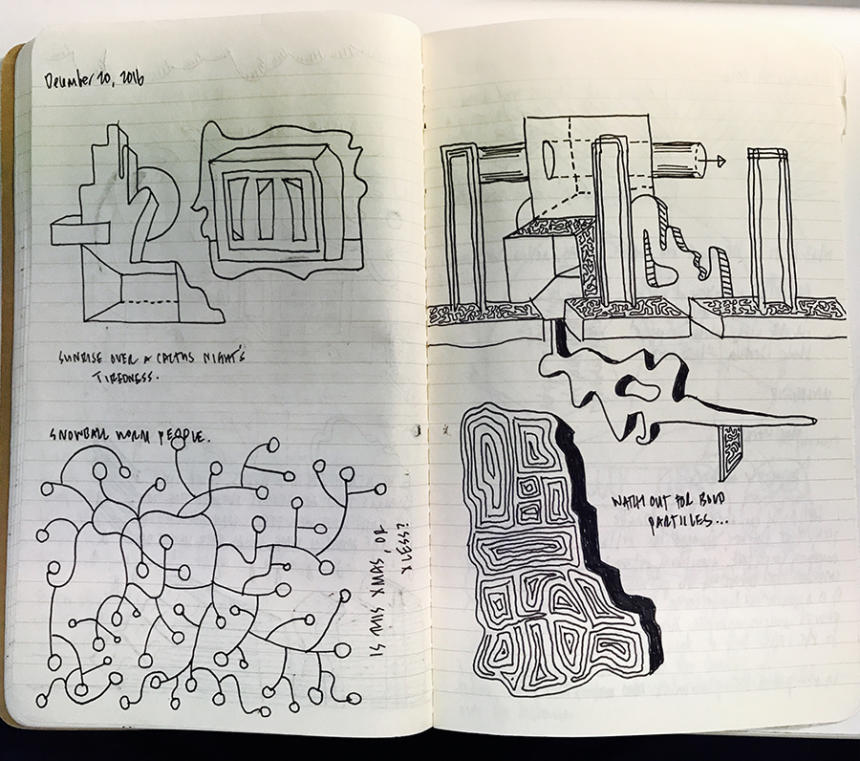 December 20, 2016
SUNRISE OVER A CACTUS NIGHT'S
TIREDNESS.
SNOWBALL WORM PEOPLE.
IS THIS XMAS, OR
XLESS?
WATCH OUT FOR BOLD
PARTICLES...